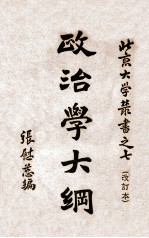 北京大学叢書之七
(改訂本)
政治學大綱
張慰慈編